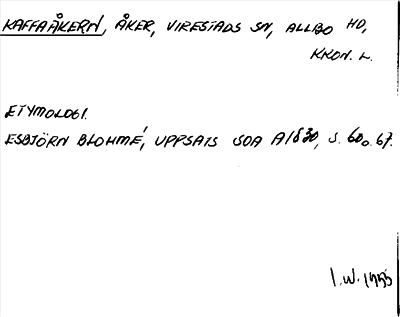 KAFFAÅKERN, ÅKER, VIRESTADS SN, ALLBO HD,
KRON. L.
ETYMOLOGI.
ESBJÖRN BLOHMÉ, UPPSATS SOA A1830, S. 60 o. 67.
I.W. 1993